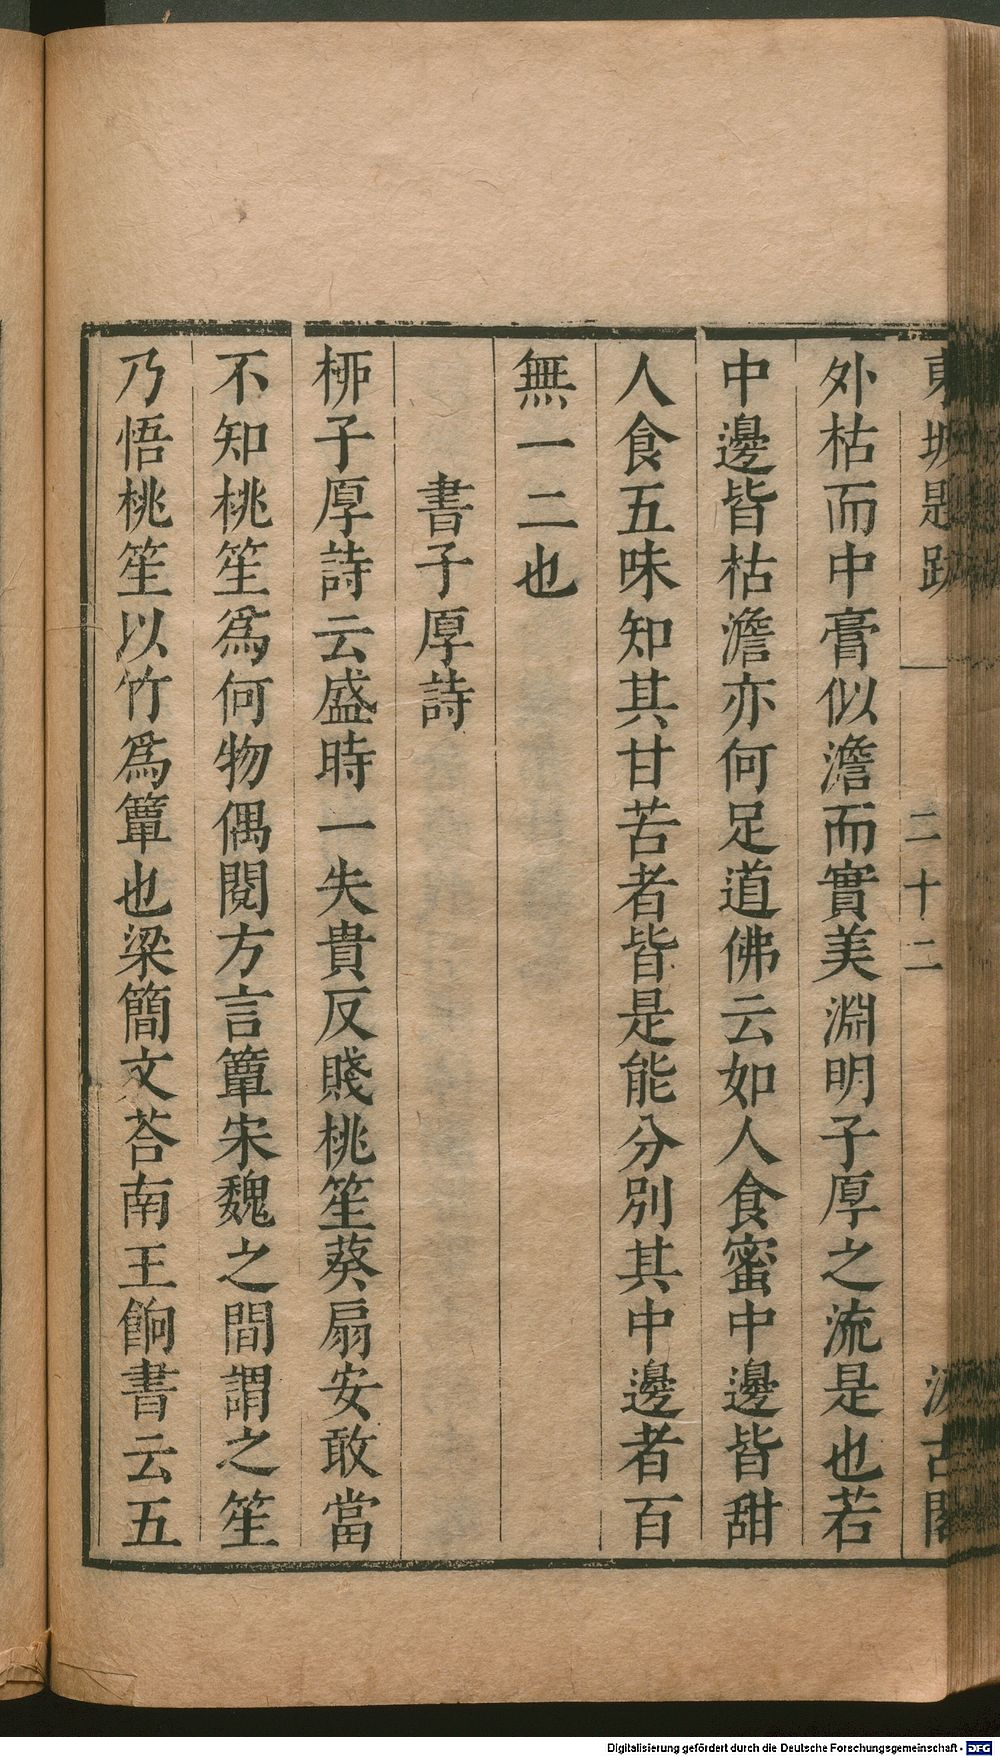 東坡題跋 一 二十二 汲古閣
外枯而中膏似澹而實美淵明子厚之流是也若
中邊皆枯澹亦何足道佛云如人食蜜中邊皆甜
人食五味知其甘苦者皆是能分別其中邊者百
無一二也
書子厚詩
桞子厚詩云盛時一失貴反賤桃笙葵扇安敢當
不知桃笙爲何物偶閱方言簟宋魏之間謂之笙
乃悟桃笙以竹爲簟也梁簡文荅南王餉書云五
Digitalisierung gefördert durch die Deutsche Forschungsgemeinschaft - DFG